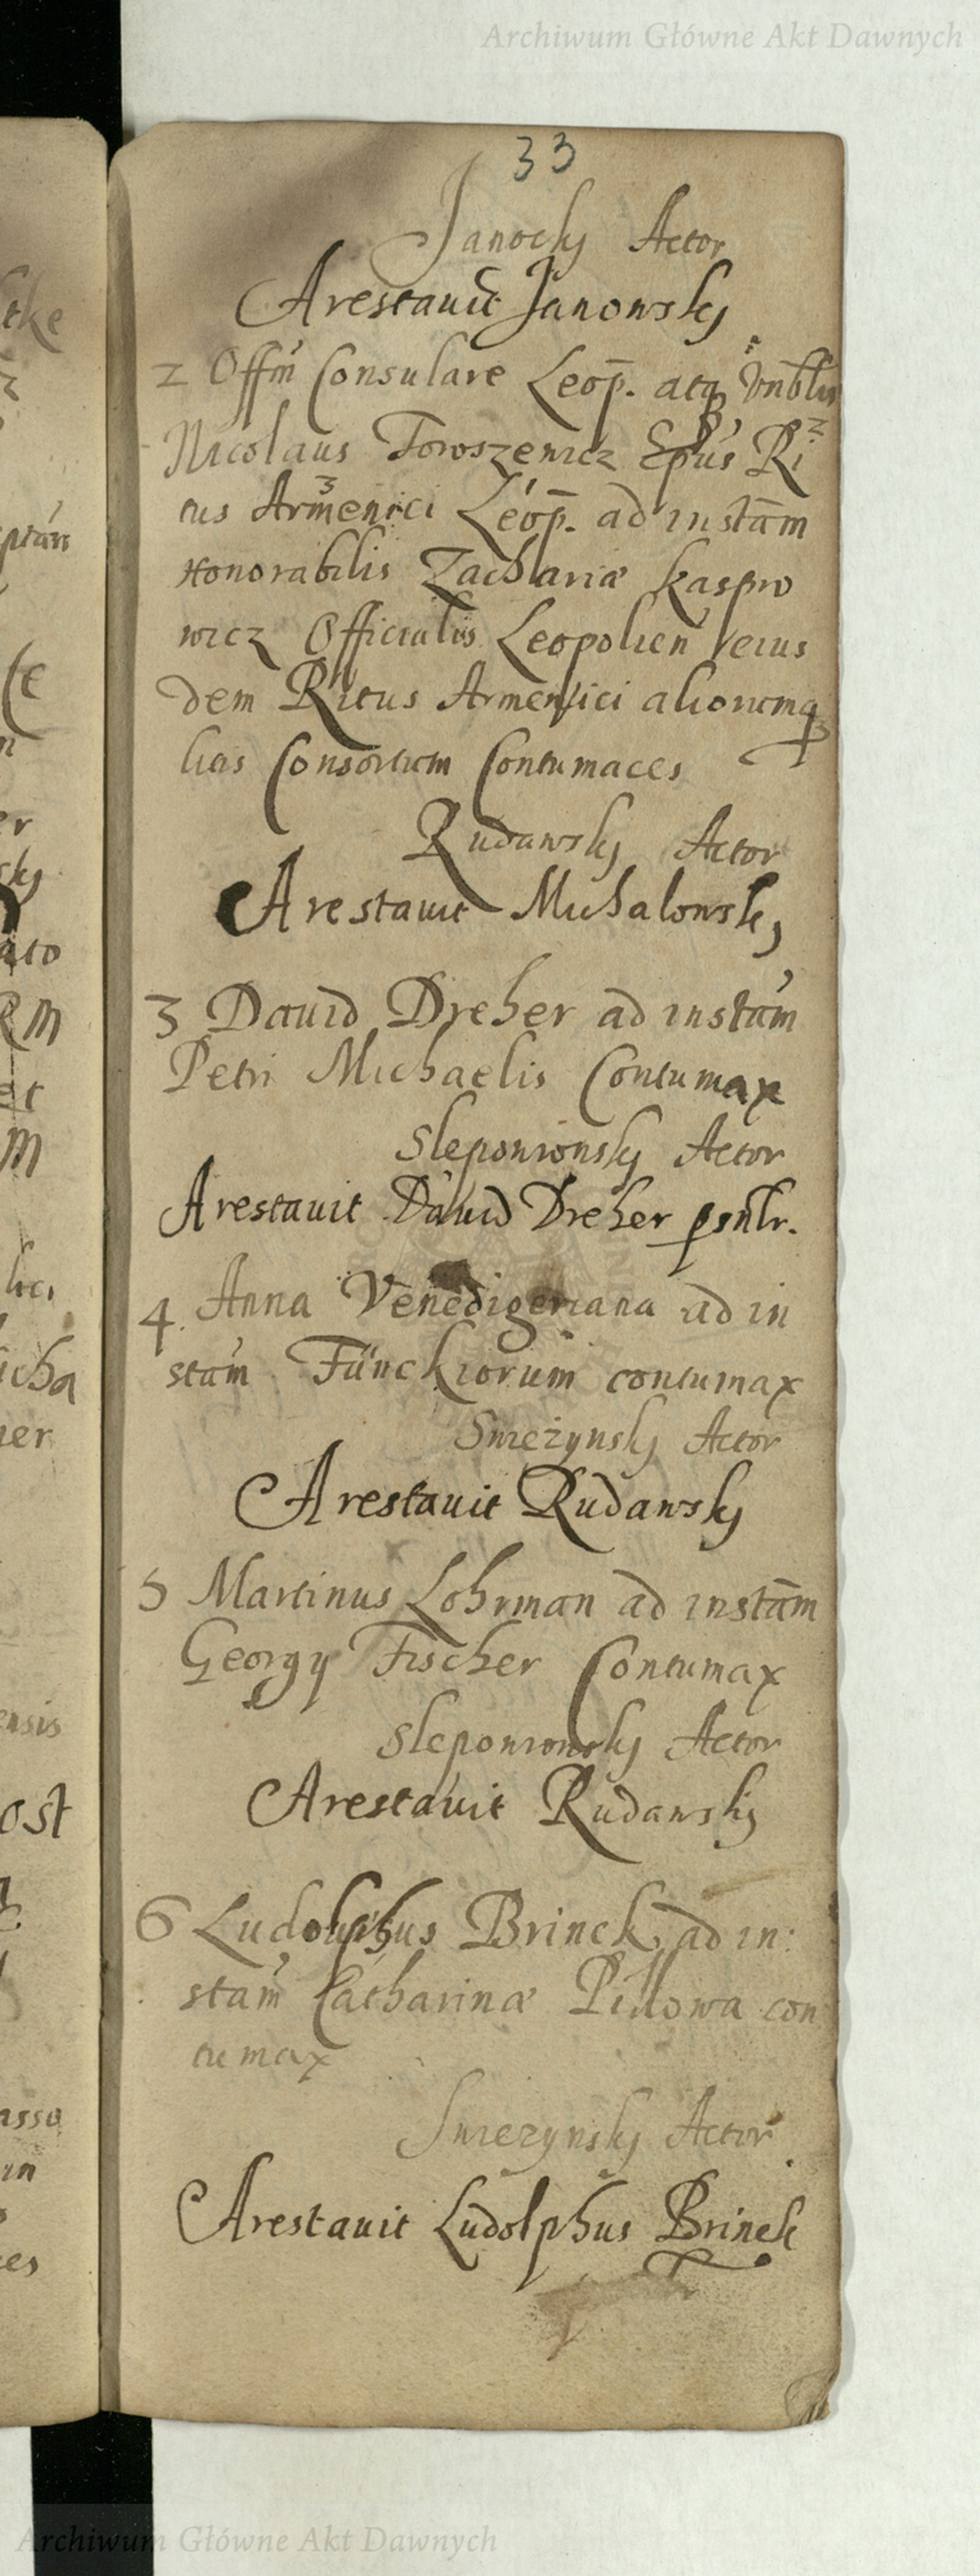 Archiwum Główne Akt Dawnych
33
Janocky Actor
Arestauit Janowsky
2 Offm̃ Consulare Leop̄. atq
Nicolaus Toroszewicz Ep̃us Ri
tus Armenici Leop̄. ad instām
Honorabilis Zachariæ Kaspro
wicz Officialis Leopolien eius
dem Ritus Armenici aliorumq
litis Consortium Contumaces
Rudawsky Actor
Arestauit Michalowsky
3 Dauid Dreher ad instam̃
Petri Michaelis Contumax
Sleponronsky Actor
Arestauit Dauid Dreher psñlr.
4. Anna Venedigeriana ad in
stam̃ Fünckiorum contumax
Smezynsky Actor
Arestauit Rudawsky
5 Martinus Lohrman ad instām
Georgy Fischer Contumax
Sleponronsky Actor
Arestauit Rudawsky
6 Ludolphus Brinck ad in:
stam̃ Catharinæ Pillowa con
tumax
Smezynsky Actor
Arestauit Ludolphus Brinck
Archiwum Główne Akt Dawnych